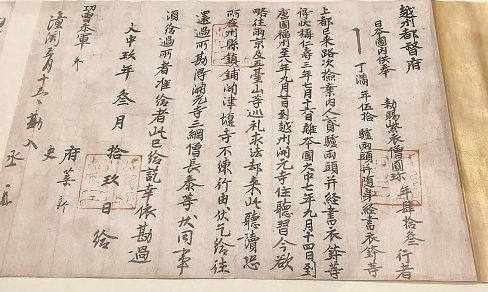 越州都督府
日本國内供奉 勅賜紫衣僧圓珎 年肆拾叁 行者
丁滿 年伍拾 驢兩頭并随身經書衣鉢等
上都已来路次檢案内人貳驢兩頭并經書衣鉢等
得狀稱仁壽三年七月十六日離本國大中七年九月十四日到
唐國福州至八年九月廿日到越州開元寺住聽習今欲
略往兩京及五臺山等巡礼求法却来此聽讀恐
所在州縣鎮鋪關津堰寺不練行由伏乞給往
還過所勘得開元寺三綱僧長泰等狀同事
須給過所者准給者此已給訖幸依勘過
大中玖年叁月拾玖日給
府葉新
功曹參軍
史
潼關五月十五日勘入
丞